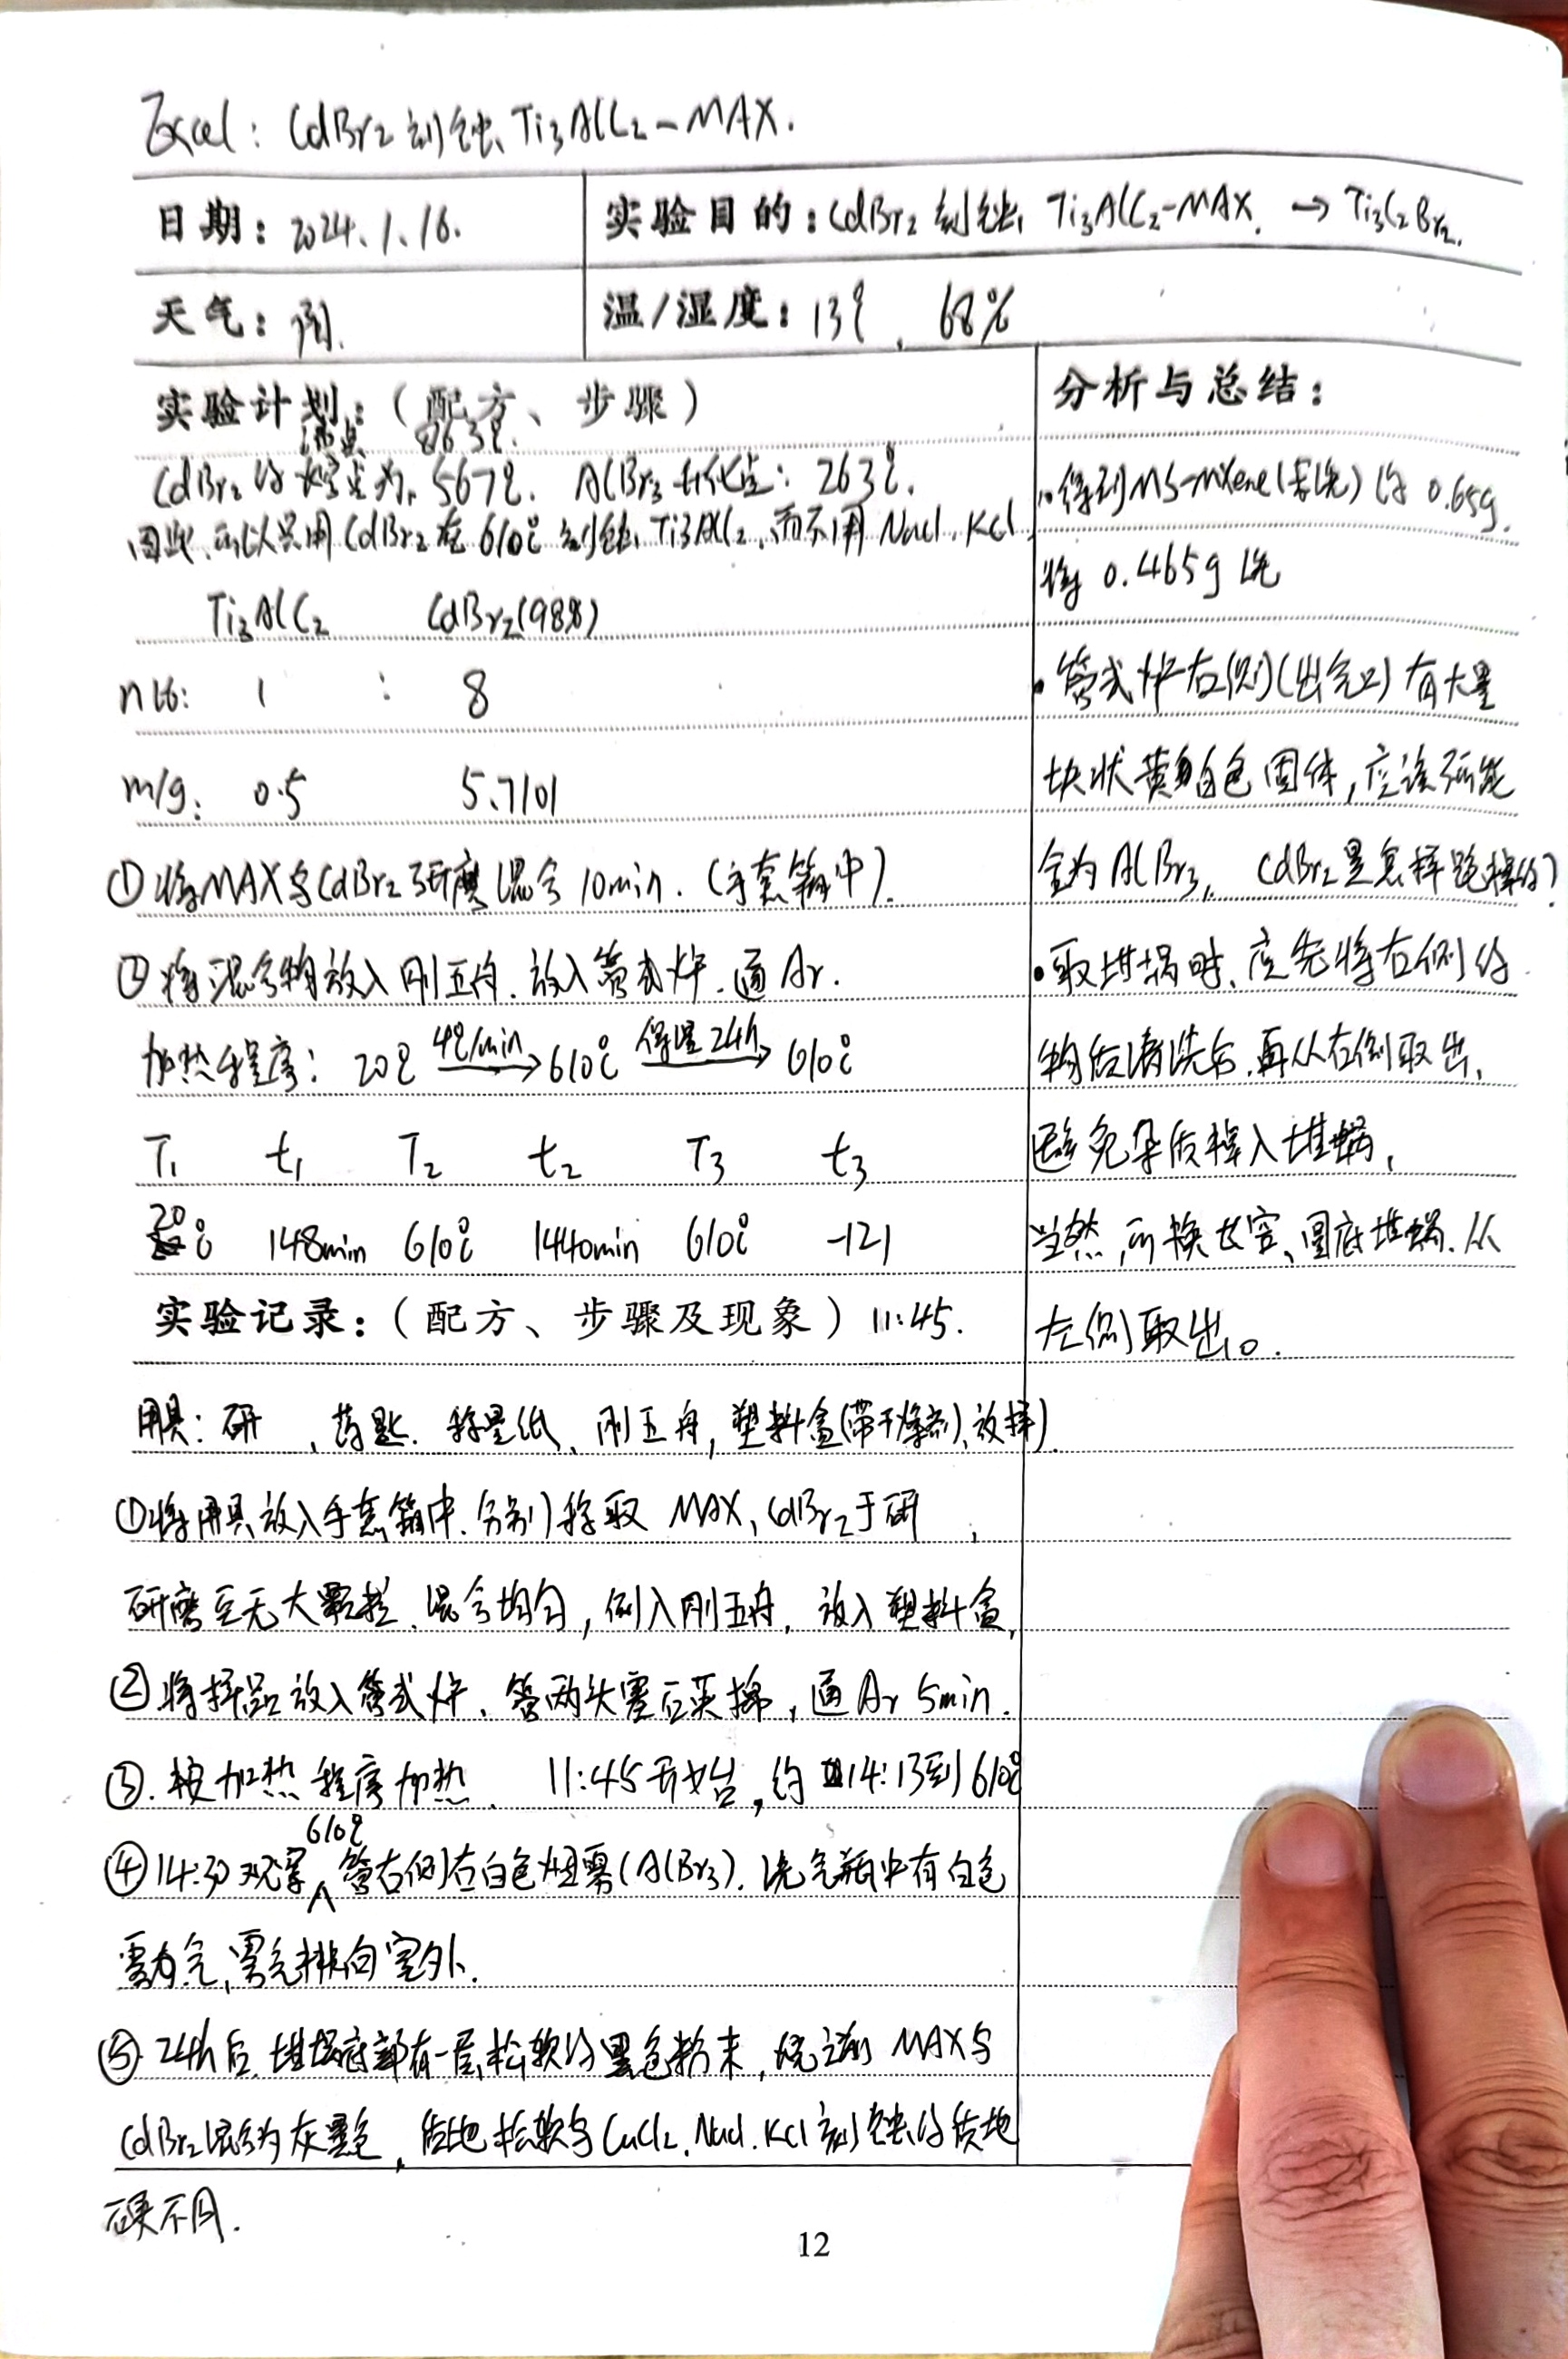 Excel: CdBr2 刻蚀 Ti3AlC2-MAX.
日期: 2024.1.16.
实验目的: CdBr2 刻蚀 Ti3AlC2-MAX. → Ti3C2Br2.
天气: 阴.
温/湿度: 13℃. 68%
实验计划:(配方、步骤)
沸点 863℃.
CdBr2的熔点为 567℃. AlBr3 升化点: 263℃.
因此,可以只用CdBr2在610℃刻蚀Ti3AlC2,而不用NaCl. KCl.
Ti3AlC2 CdBr2(98%)
n比: 1 : 8
m/g: 0.5 5.7101
①将MAX与CdBr2研磨混合10min.(手套箱中).
②将混合物放入刚玉舟.放入管式炉.通Ar.
加热程序: 20℃ 4℃/min→ 610℃ 保温24h→ 610℃
T1 t1 T2 t2 T3 t3
20℃ 148min 610℃ 1440min 610℃ -121
实验记录:(配方、步骤及现象)11:45.
用具: 研 、药匙. 称量纸、刚玉舟,塑料盒(带干燥剂),放样)
①将用具放入手套箱中.分别称取 MAX, CdBr2于研 ,
研磨至无大颗粒.混合均匀,倒入刚玉舟,放入塑料盒,
②将样品放入管式炉、管两头塞石英棉,通Ar 5min.
③.按加热程序加热. 11:45开始,约14:13到610℃
④14:30观察610℃管右侧有白色烟雾(AlBr3).洗气瓶中有白色
雾气,雾气排向室外.
⑤24h后.坩埚底部有一层松软的黑色粉末,烧之前MAX与
CdBr2混合为灰黑色,质地松软与CuCl2.NaCl.KCl刻蚀的质地
硬不同.
分析与总结:
∴得到MS-MXene(未洗)约0.65g.
将0.465g洗
•管式炉右侧(出气口)有大量
块状黄白色固体,应该不能
全为AlBr3, CdBr2是怎样跑掉的?
•取坩埚时,应先将右侧的
物质清洗后.再从右侧取出,
避免杂质掉入坩埚,
当然,可换 、圆底坩埚.从
左侧取出。
12